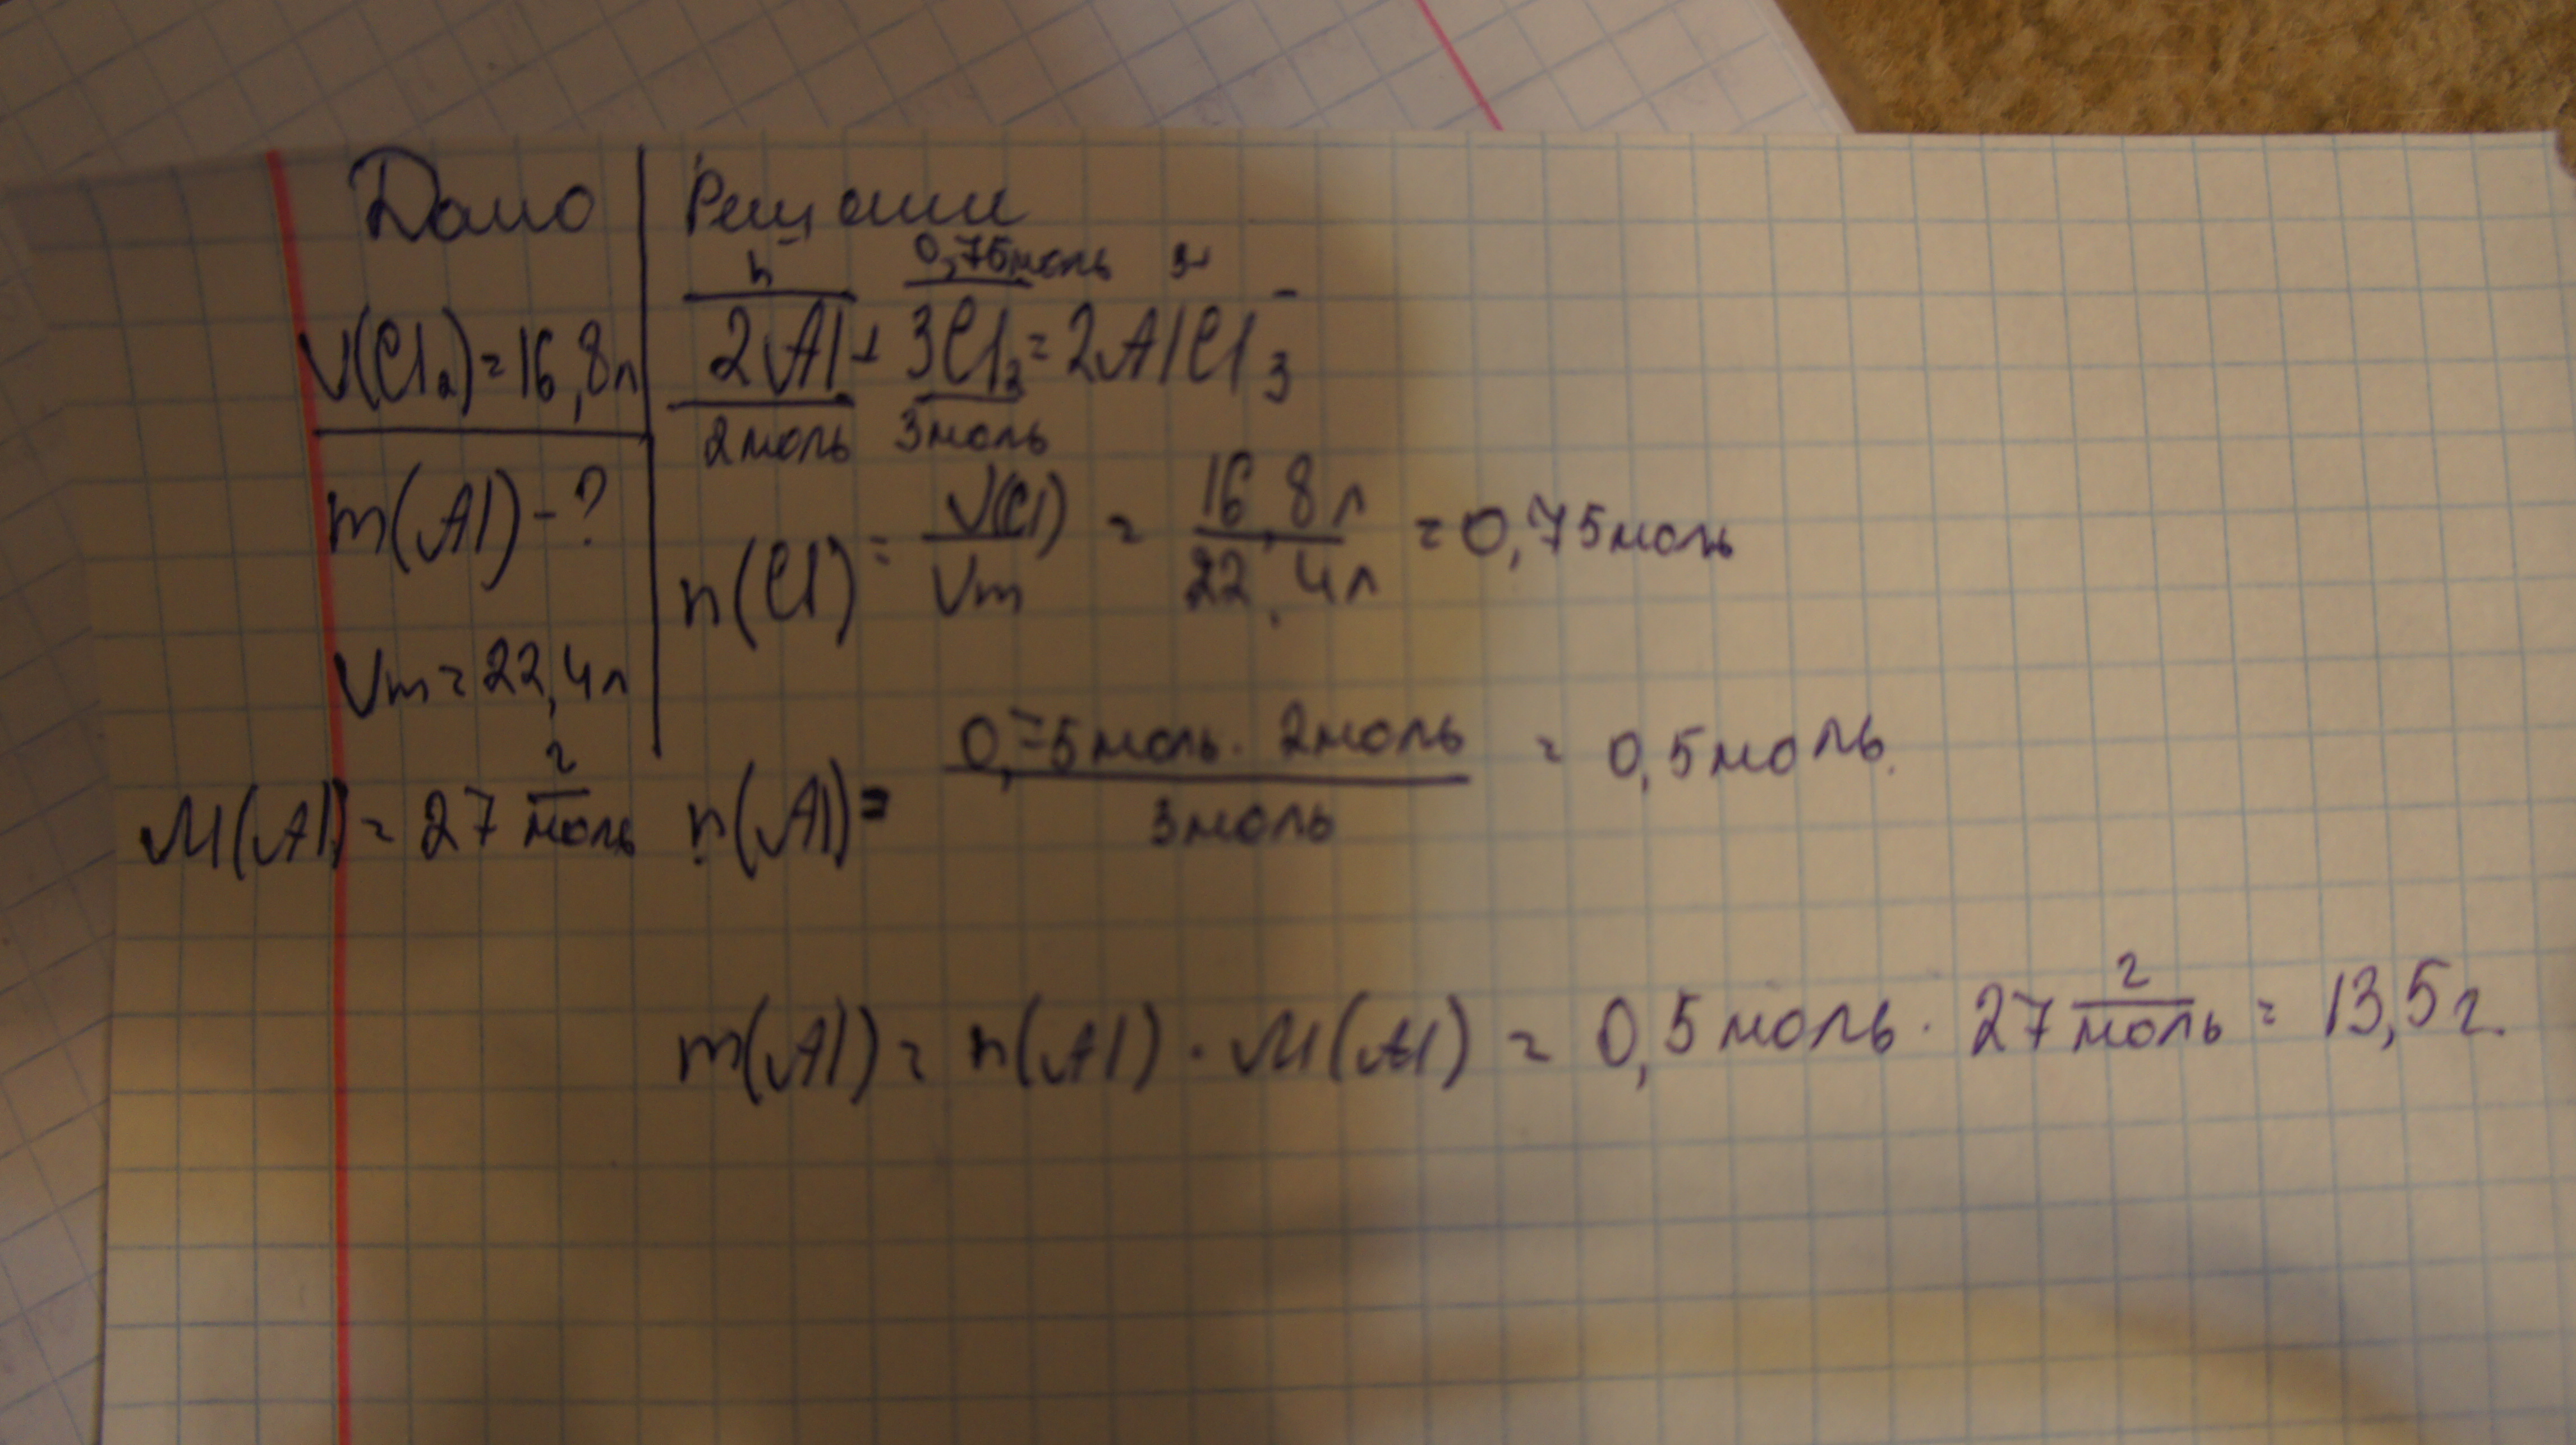 Дано
V(Cl₂)=16,8л
m(Al)-?
Vm=22,4л
M(Al)=27 г/моль
Решение
n 0,75моль
2Al+3Cl₂=2AlCl₃
2моль 3моль
n(Cl)=V(Cl)/Vm=16,8л/22,4л=0,75моль
n(Al)=0,75моль·2моль/3моль=0,5моль.
m(Al)=n(Al)·M(Al)=0,5моль·27 г/моль=13,5г.